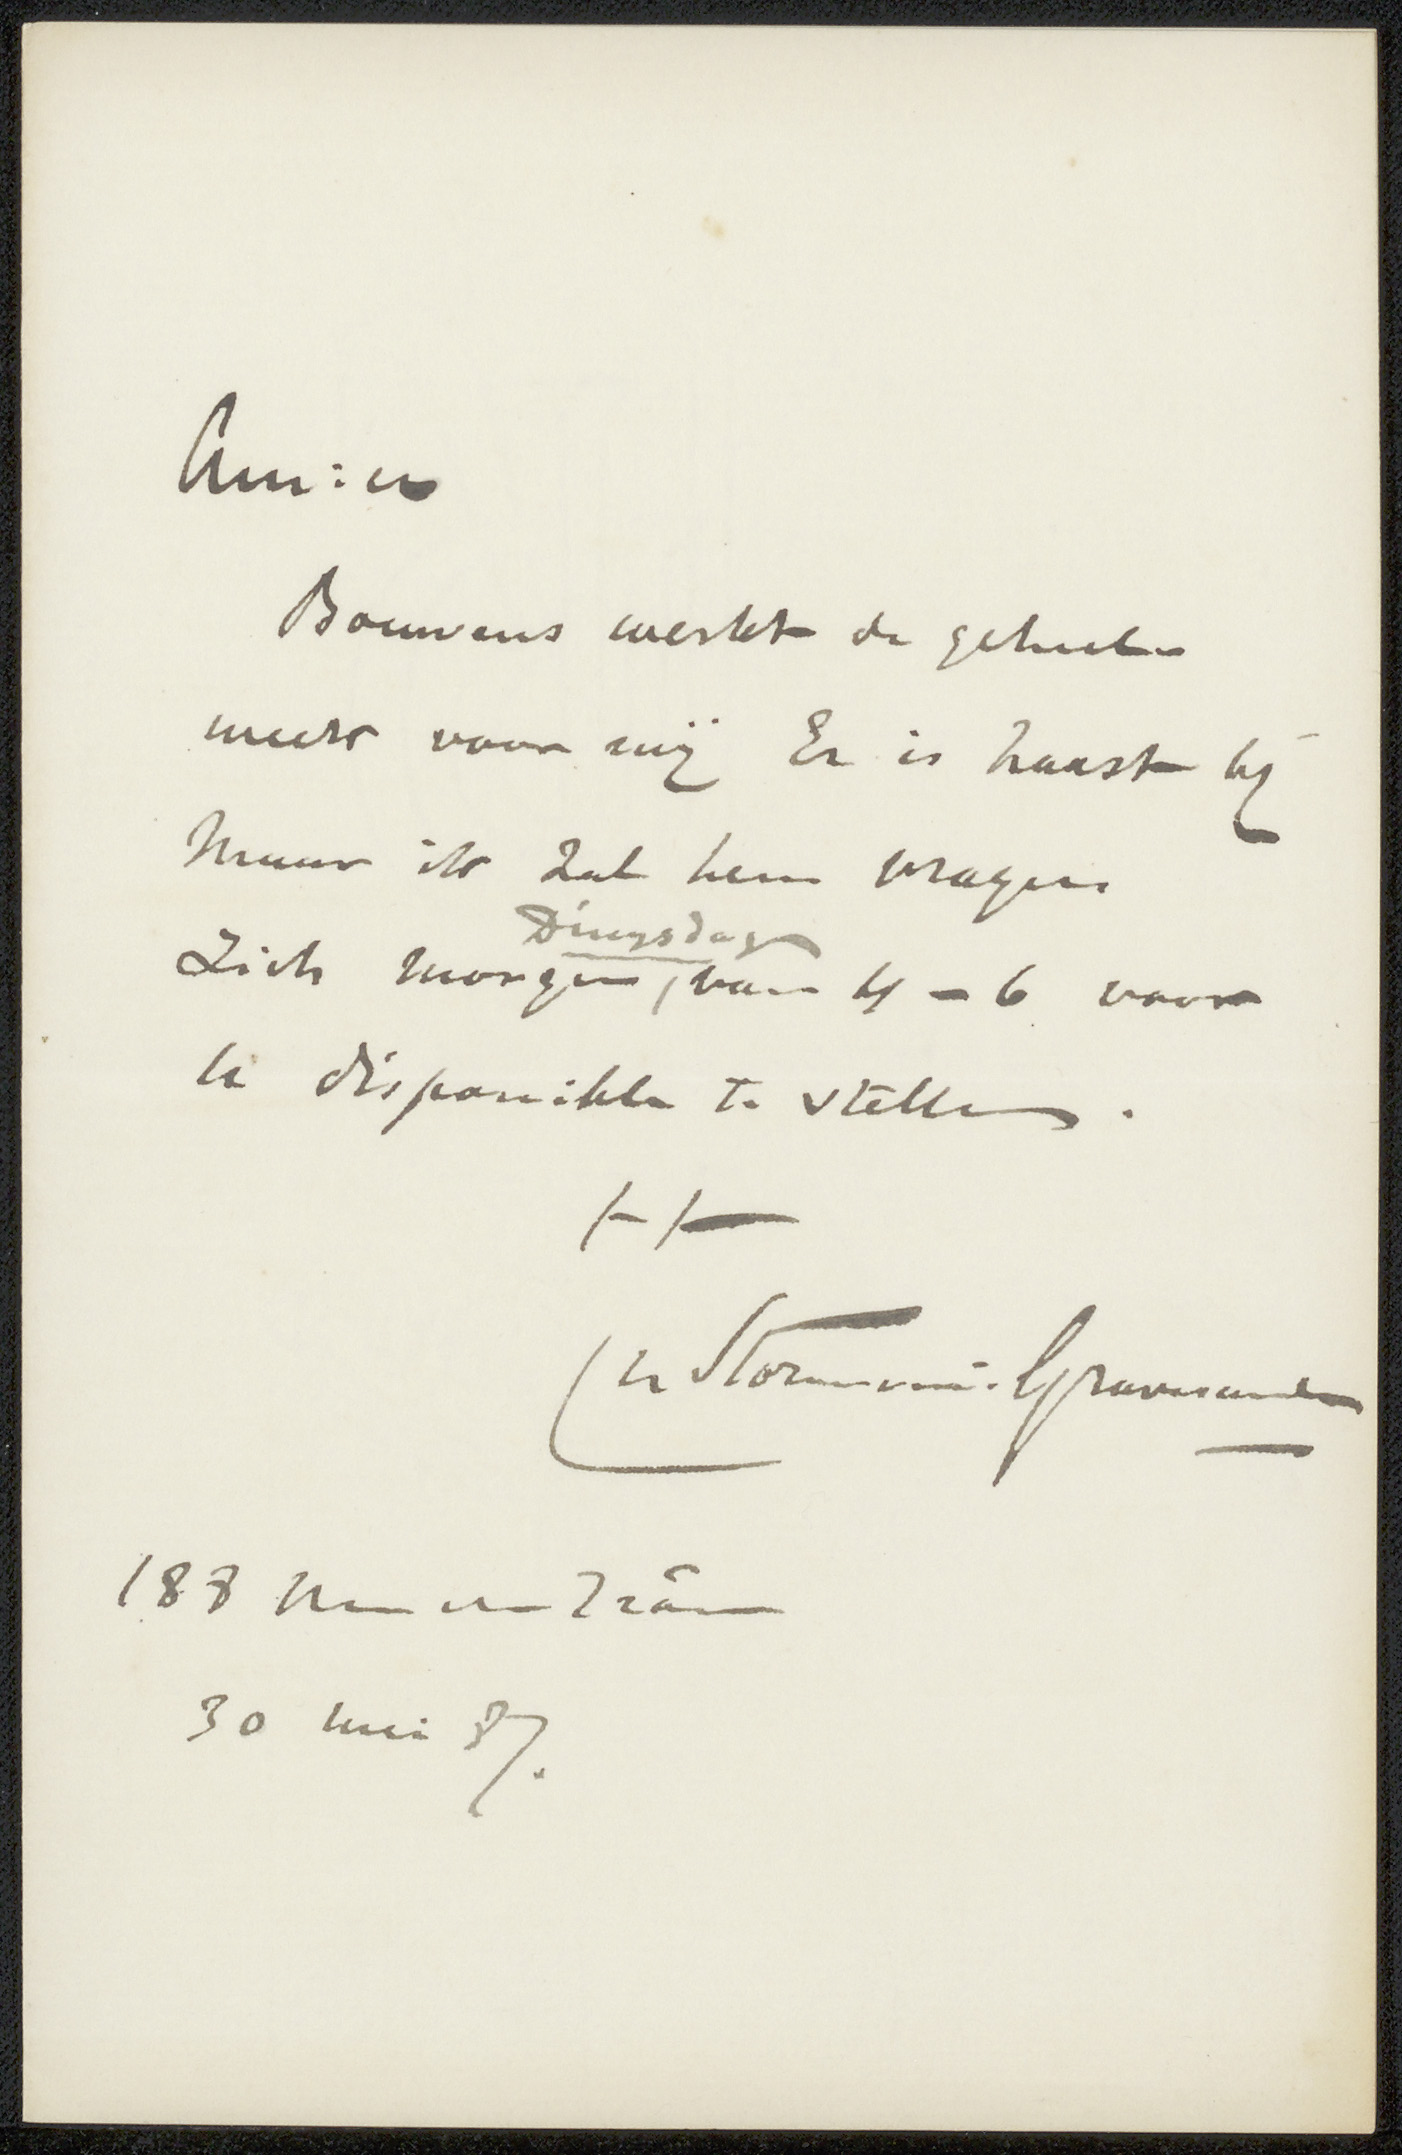 Amice
Bouwens werkt de geheele
week voor mij Er is haast bij
Maar ik zal hem vragen
Dingsdag
zich morgen, van 4 – 6 voor
u disponible te stellen.
tt
Storm v. 's Gravesande
188
30 Mei 87.